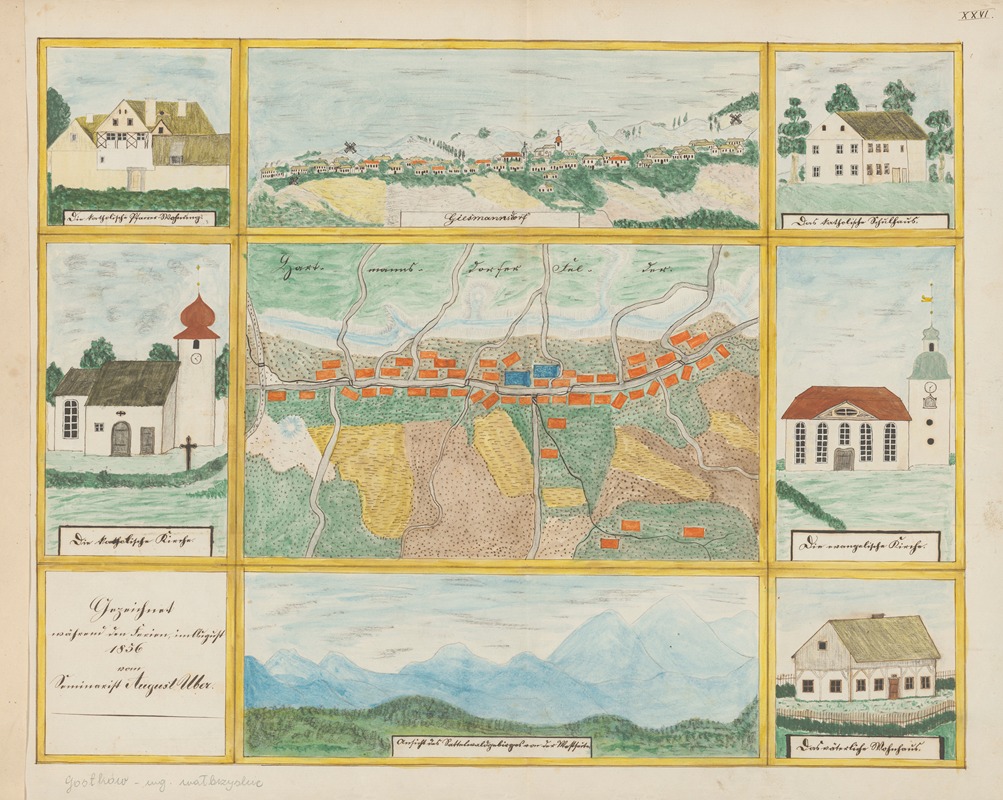 XXVI.
Die katholische Pfarrer-Wohnung.
Giesmannsdorf
Das katholische Schulhaus.
Hart- manns- dorfer Fel- der.
Die katholische Kirche
Die evangelische Kirche.
Gezeichnet
während den Ferien, im August
1836
vom
Seminarist August Über.
Ansicht des Sattelwaldgebirges von der Westseite
Das väterliche Wohnhaus.
Gostków - wg.